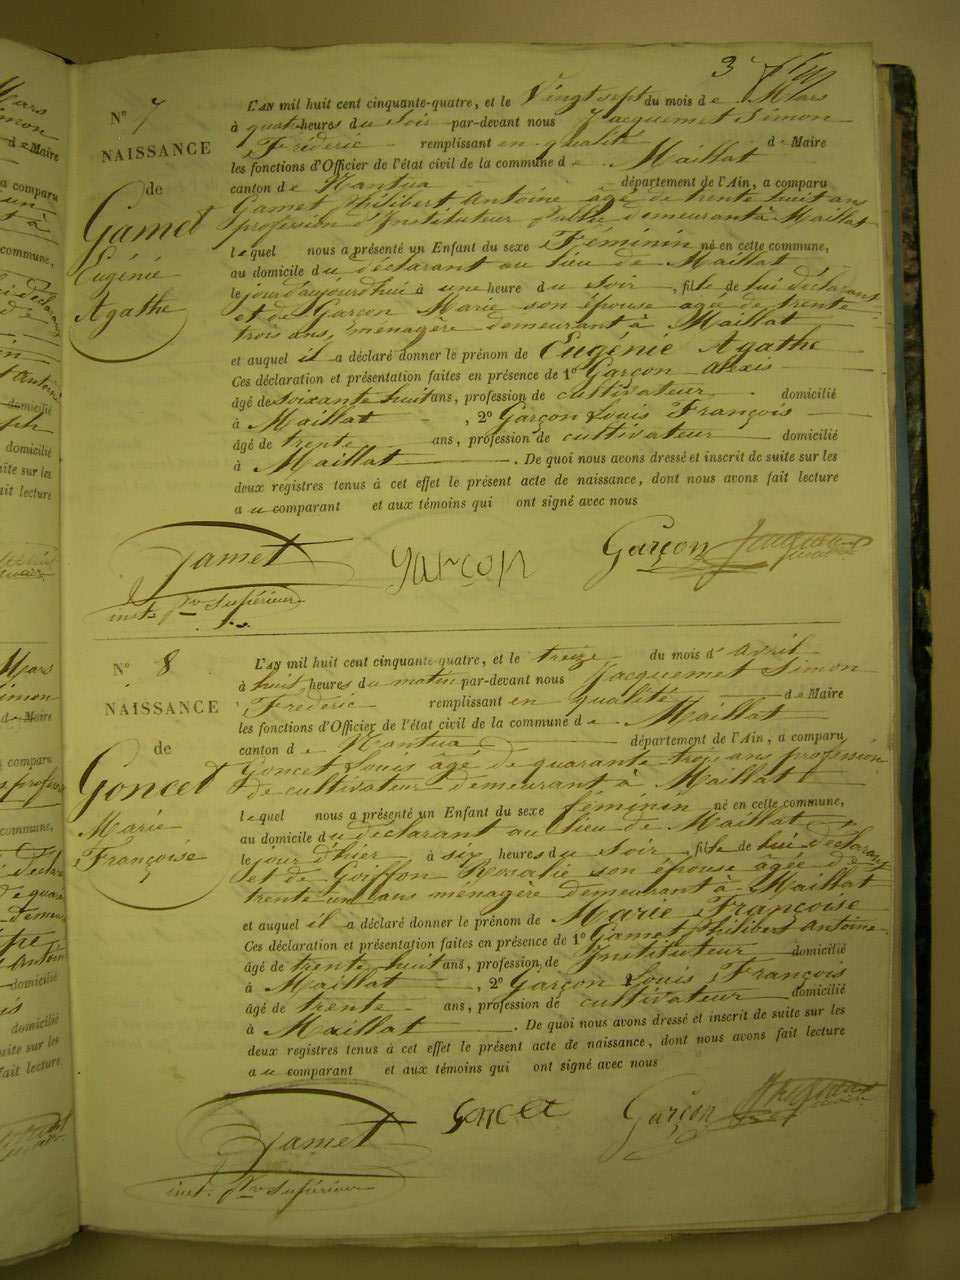 3
N° 7
NAISSANCE
de
Gamet
Eugénie
Agathe
L'AN mil huit cent cinquante-quatre, et le Vingt sept du mois de Mars
à quatre heures du Soir par-devant nous Jacquemet Simon
Fréderic remplissant en qualité de Maire
les fonctions d'Officier de l'état civil de la commune de Maillat
canton de Nantua département de l'Ain, a comparu
Gamet Philibert Antoine âgé de trente huit ans
profession d'Instituteur public demeurant à Maillat
lequel nous a présenté un Enfant du sexe Féminin né en cette commune,
au domicile du déclarant au lieu de Maillat
le jour d'aujourd'hui à une heure du Soir, fille de lui déclarant
et de Garçon Marie son épouse agée de trente
trois ans, ménagère demeurant à Maillat
et auquel il a déclaré donner le prénom de Eugénie Agathe
Ces déclaration et présentation faites en présence de 1° Garçon Alexis
âgé de soixante huit ans, profession de cultivateur domicilié
à Maillat, 2° Garçon Louis François
âgé de trente ans, profession de cultivateur domicilié
à Maillat. De quoi nous avons dressé et inscrit de suite sur les
deux registres tenus à cet effet le présent acte de naissance, dont nous avons fait lecture
au comparant et aux témoins qui ont signé avec nous
Gamet garçon Garçon
inst. p.re supérieur
N° 8
NAISSANCE
de
Goncet
Marie
Françoise
L'AN mil huit cent cinquante-quatre, et le treize du mois d'avril
à huit heures du matin par-devant nous Jacquemet Simon
Fréderic remplissant en qualité de Maire
les fonctions d'Officier de l'état civil de la commune de Maillat
canton de Nantua département de l'Ain, a comparu
Goncet Louis âgé de quarante trois ans profession
de cultivateur demeurant à Maillat
lequel nous a présenté un Enfant du sexe féminin né en cette commune,
au domicile du déclarant au lieu de Maillat
le jour d'hier à six heures du Soir, fille de lui déclarant
et de Goiffon Rosalie son épouse âgée de
trente un ans ménagère demeurant à Maillat
et auquel il a déclaré donner le prénom de Marie Françoise
Ces déclaration et présentation faites en présence de 1° Gamet Philibert Antoine
âgé de trente huit ans, profession de Instituteur domicilié
à Maillat, 2° Garçon Louis François
âgé de trente ans, profession de cultivateur domicilié
à Maillat. De quoi nous avons dressé et inscrit de suite sur les
deux registres tenus à cet effet le présent acte de naissance, dont nous avons fait lecture
au comparant et aux témoins qui ont signé avec nous
Gamet goncet Garçon
inst. p.re supérieur